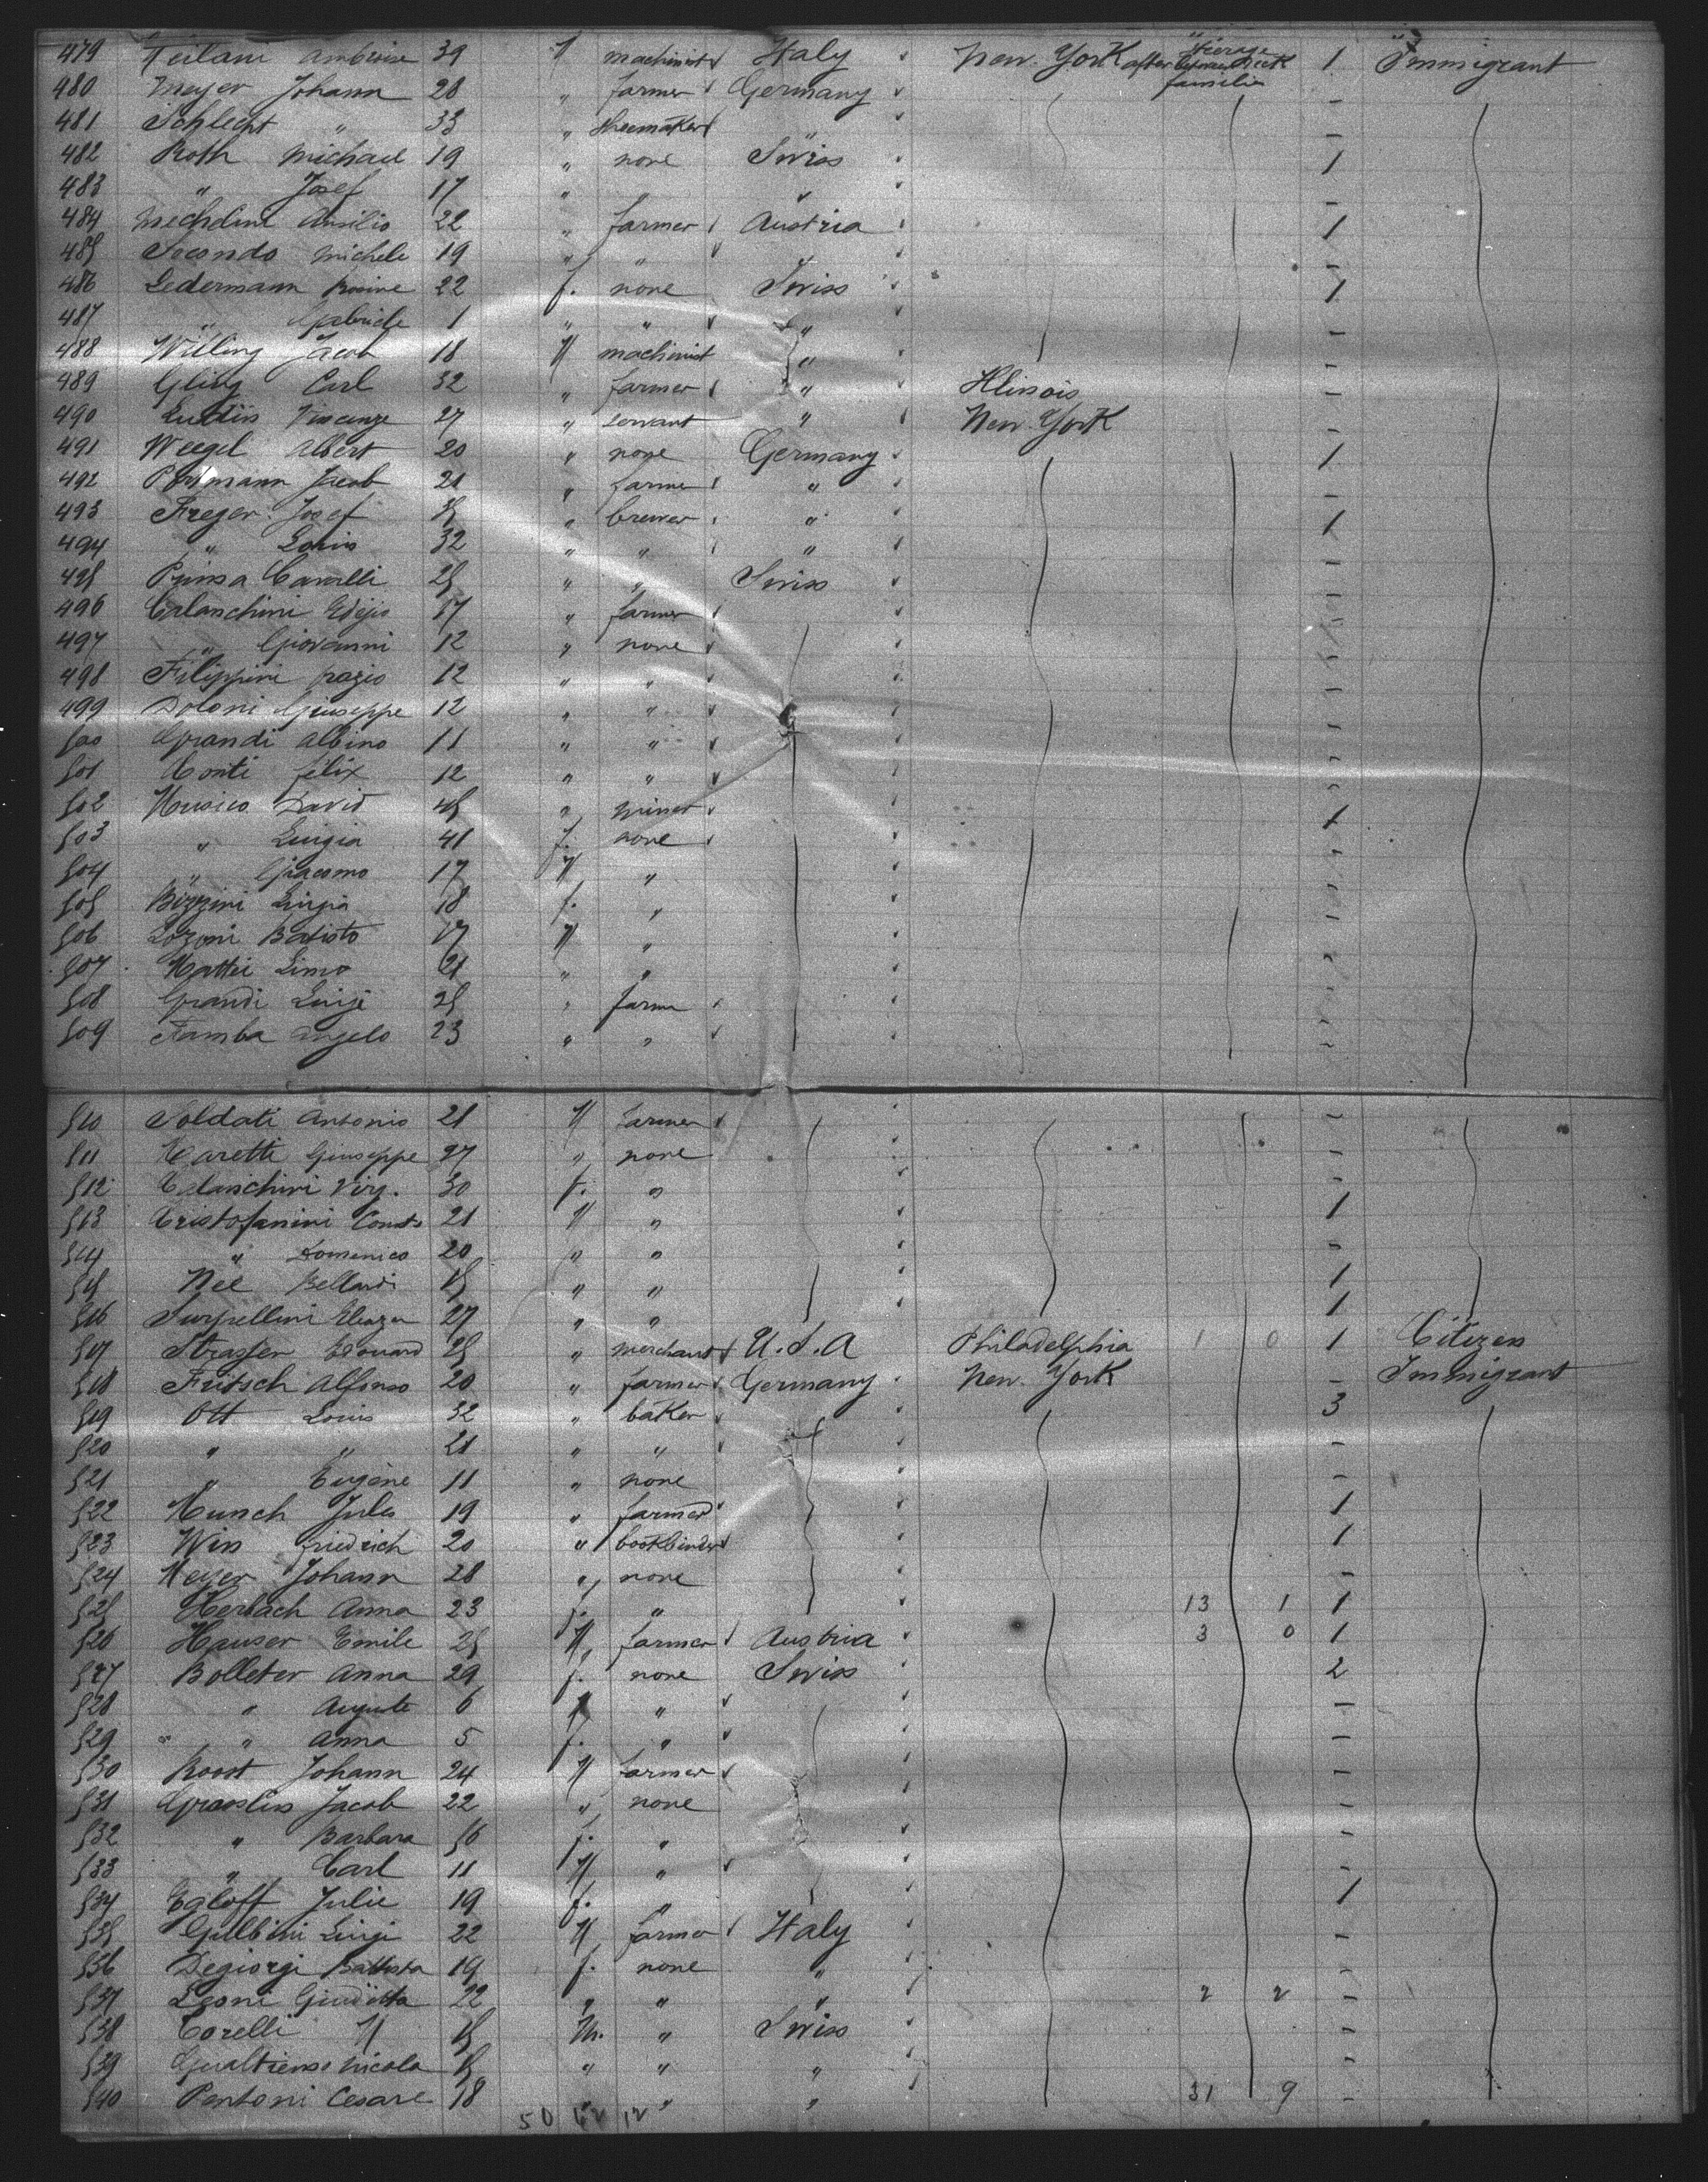 479 Teilani Ambroise 39 M machinist Italy New-York after steerage familie 1 Immigrant
480 Meyer Johann 28 " farmer Germany -
481 Schlecht " 33 " shoemaker " -
482 Roth Michael 19 " none Swiss 1
483 " Josef 17 " " " -
484 Mechelini Ausilio 22 " farmer Austria 1
485 Secondo Michele 19 " " " -
486 Ledermann Rosine 22 f. none Swiss 1
487 " Gabriele 1 " " " -
488 Willing Jacob 18 M machinist " -
489 Gling Carl 32 " farmer " Illinois -
490 Vincenz 27 " servant " New-York -
491 Weegel Albert 20 " none Germany 1
492 Jacob 21 " farmer " -
493 Freger Josef " brewer " 1
494 " Louis 32 " " " -
495 Prinsa Cavalli 25 " " Swiss -
496 Calanchini Eligio 17 " farmer -
497 " Giovanni 12 " none -
498 Filippini 12 " " -
499 Doloni Giuseppe 12 " " -
500 Grandi Albino 11 " " -
501 Conti Felix 12 " " -
502 David 45 " miner 1
503 " Luigia 41 f. none -
504 " Giacomo 17 M " -
505 Bizzini Luigia 18 f. " -
506 Lozoni Batisto 17 M " -
507 Mattei Limo 21 " " -
508 Grandi Luigi 25 " farm -
509 Famba Angelo 23 " " -
510 Soldati Antonio 21 M farmer -
511 Maretti Giuseppe 27 " none -
512 Calanchini Virg. 30 f. " -
513 Cristofanini Const. 21 M " 1
514 " Domenico 20 " " -
515 Neè Bellardi 15 " " 1
516 27 " " 1
517 Strasser Edouard 25 " merchant U.S.A Philadelphia 1 0 1 Citizen
518 Fritsch Alfonso 20 " farmer Germany New-York - Immigrant
519 Ott Louis 32 " baker 3
520 " " 21 " " -
521 " Eugène 11 " none -
522 Munsch Jules 19 " farmer 1
523 Wiss Friedrich 20 " bookbinder 1
524 Meyer Johann 28 " none -
525 Herbach Anna 23 f. " 13 1 1
526 Hauser Emile 25 M farmer Austria 3 0 1
527 Bolleter Anna 29 f. none Swiss 2
528 " Auguste 6 M " -
529 " " Anna 5 f. " -
530 Roost Johann 24 M farmer -
531 Grasslin Jacob 22 " none -
532 " Barbara 56 f. " -
533 " Carl 11 M " -
534 Egloff Julie 19 f. " 1
535 Luigi 22 M farmer Italy -
536 Degiorgi Battista 19 f. none " -
537 Leoni Giuditta 22 " " " 2 2 -
538 Corelli M 15 M. " Swiss -
539 Nicola 15 " " " -
540 Pentoni Cesare 18 " " " 31 9 -
50 62 12